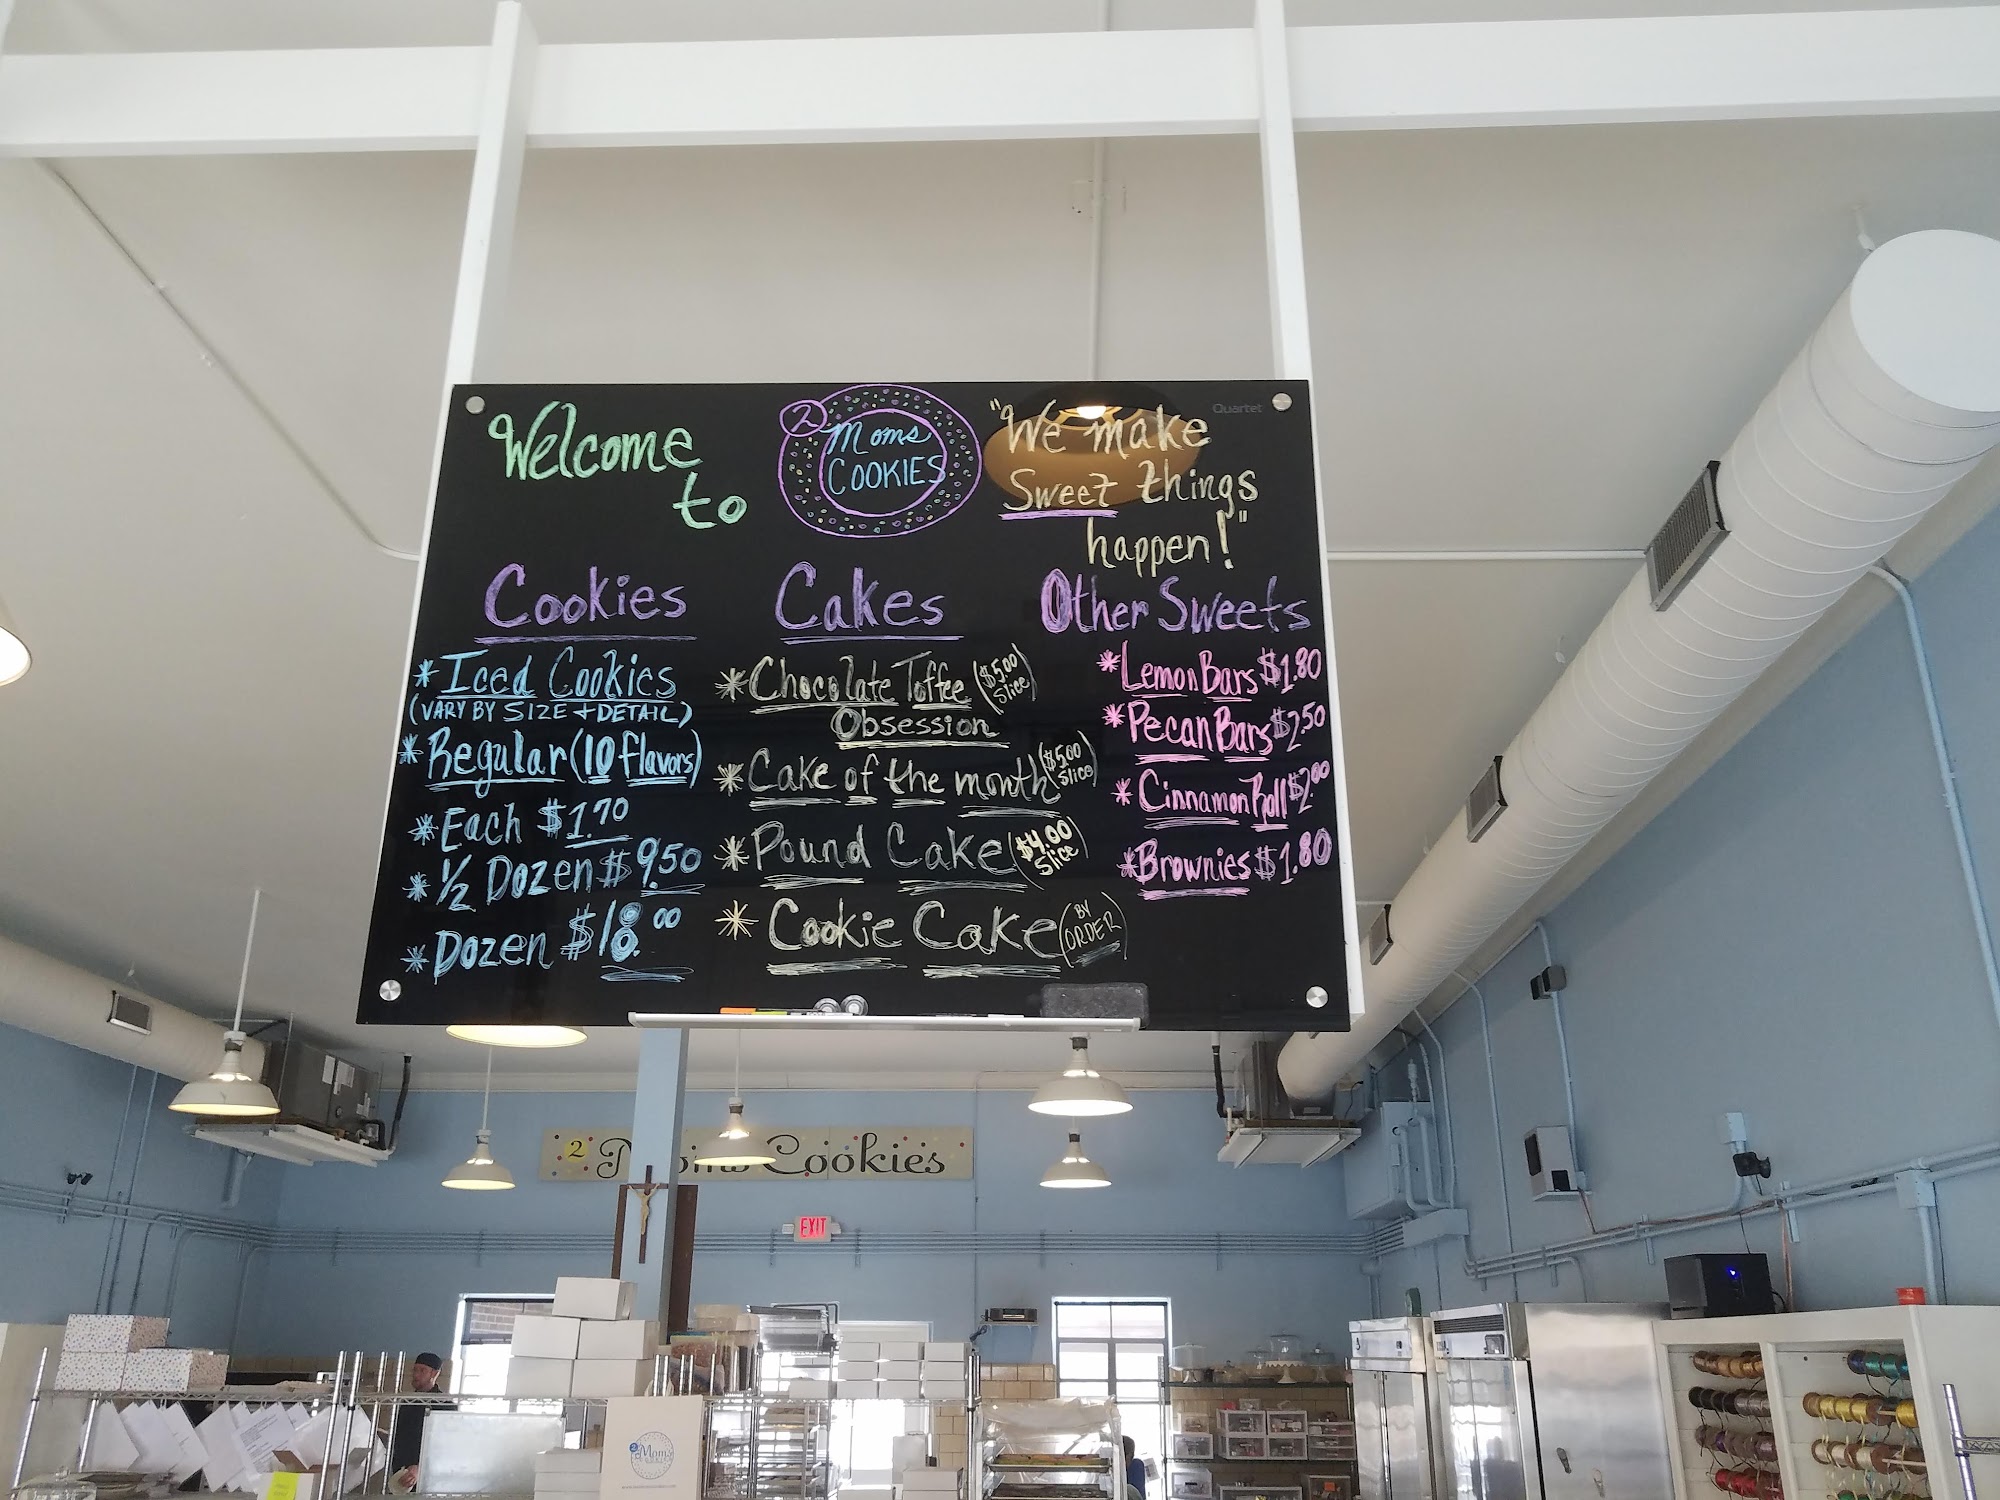 Welcome
to
2 Moms
COOKIES
"We make
Sweet things
happen!"
Quartet
Cookies
* Iced Cookies
(VARY BY SIZE + DETAIL)
* Regular (10 flavors)
* Each $1.70
* 1/2 Dozen $9.50
* Dozen $18.00
Cakes
* Chocolate Toffee ($5.00 Slice)
Obsession
* Cake of the month ($5.00 Slice)
* Pound Cake ($4.00 Slice)
* Cookie Cake (BY ORDER)
Other Sweets
* Lemon Bars $1.80
* Pecan Bars $2.50
* Cinnamon Roll $2.00
* Brownies $1.80
2 Moms Cookies
EXIT
2 Moms